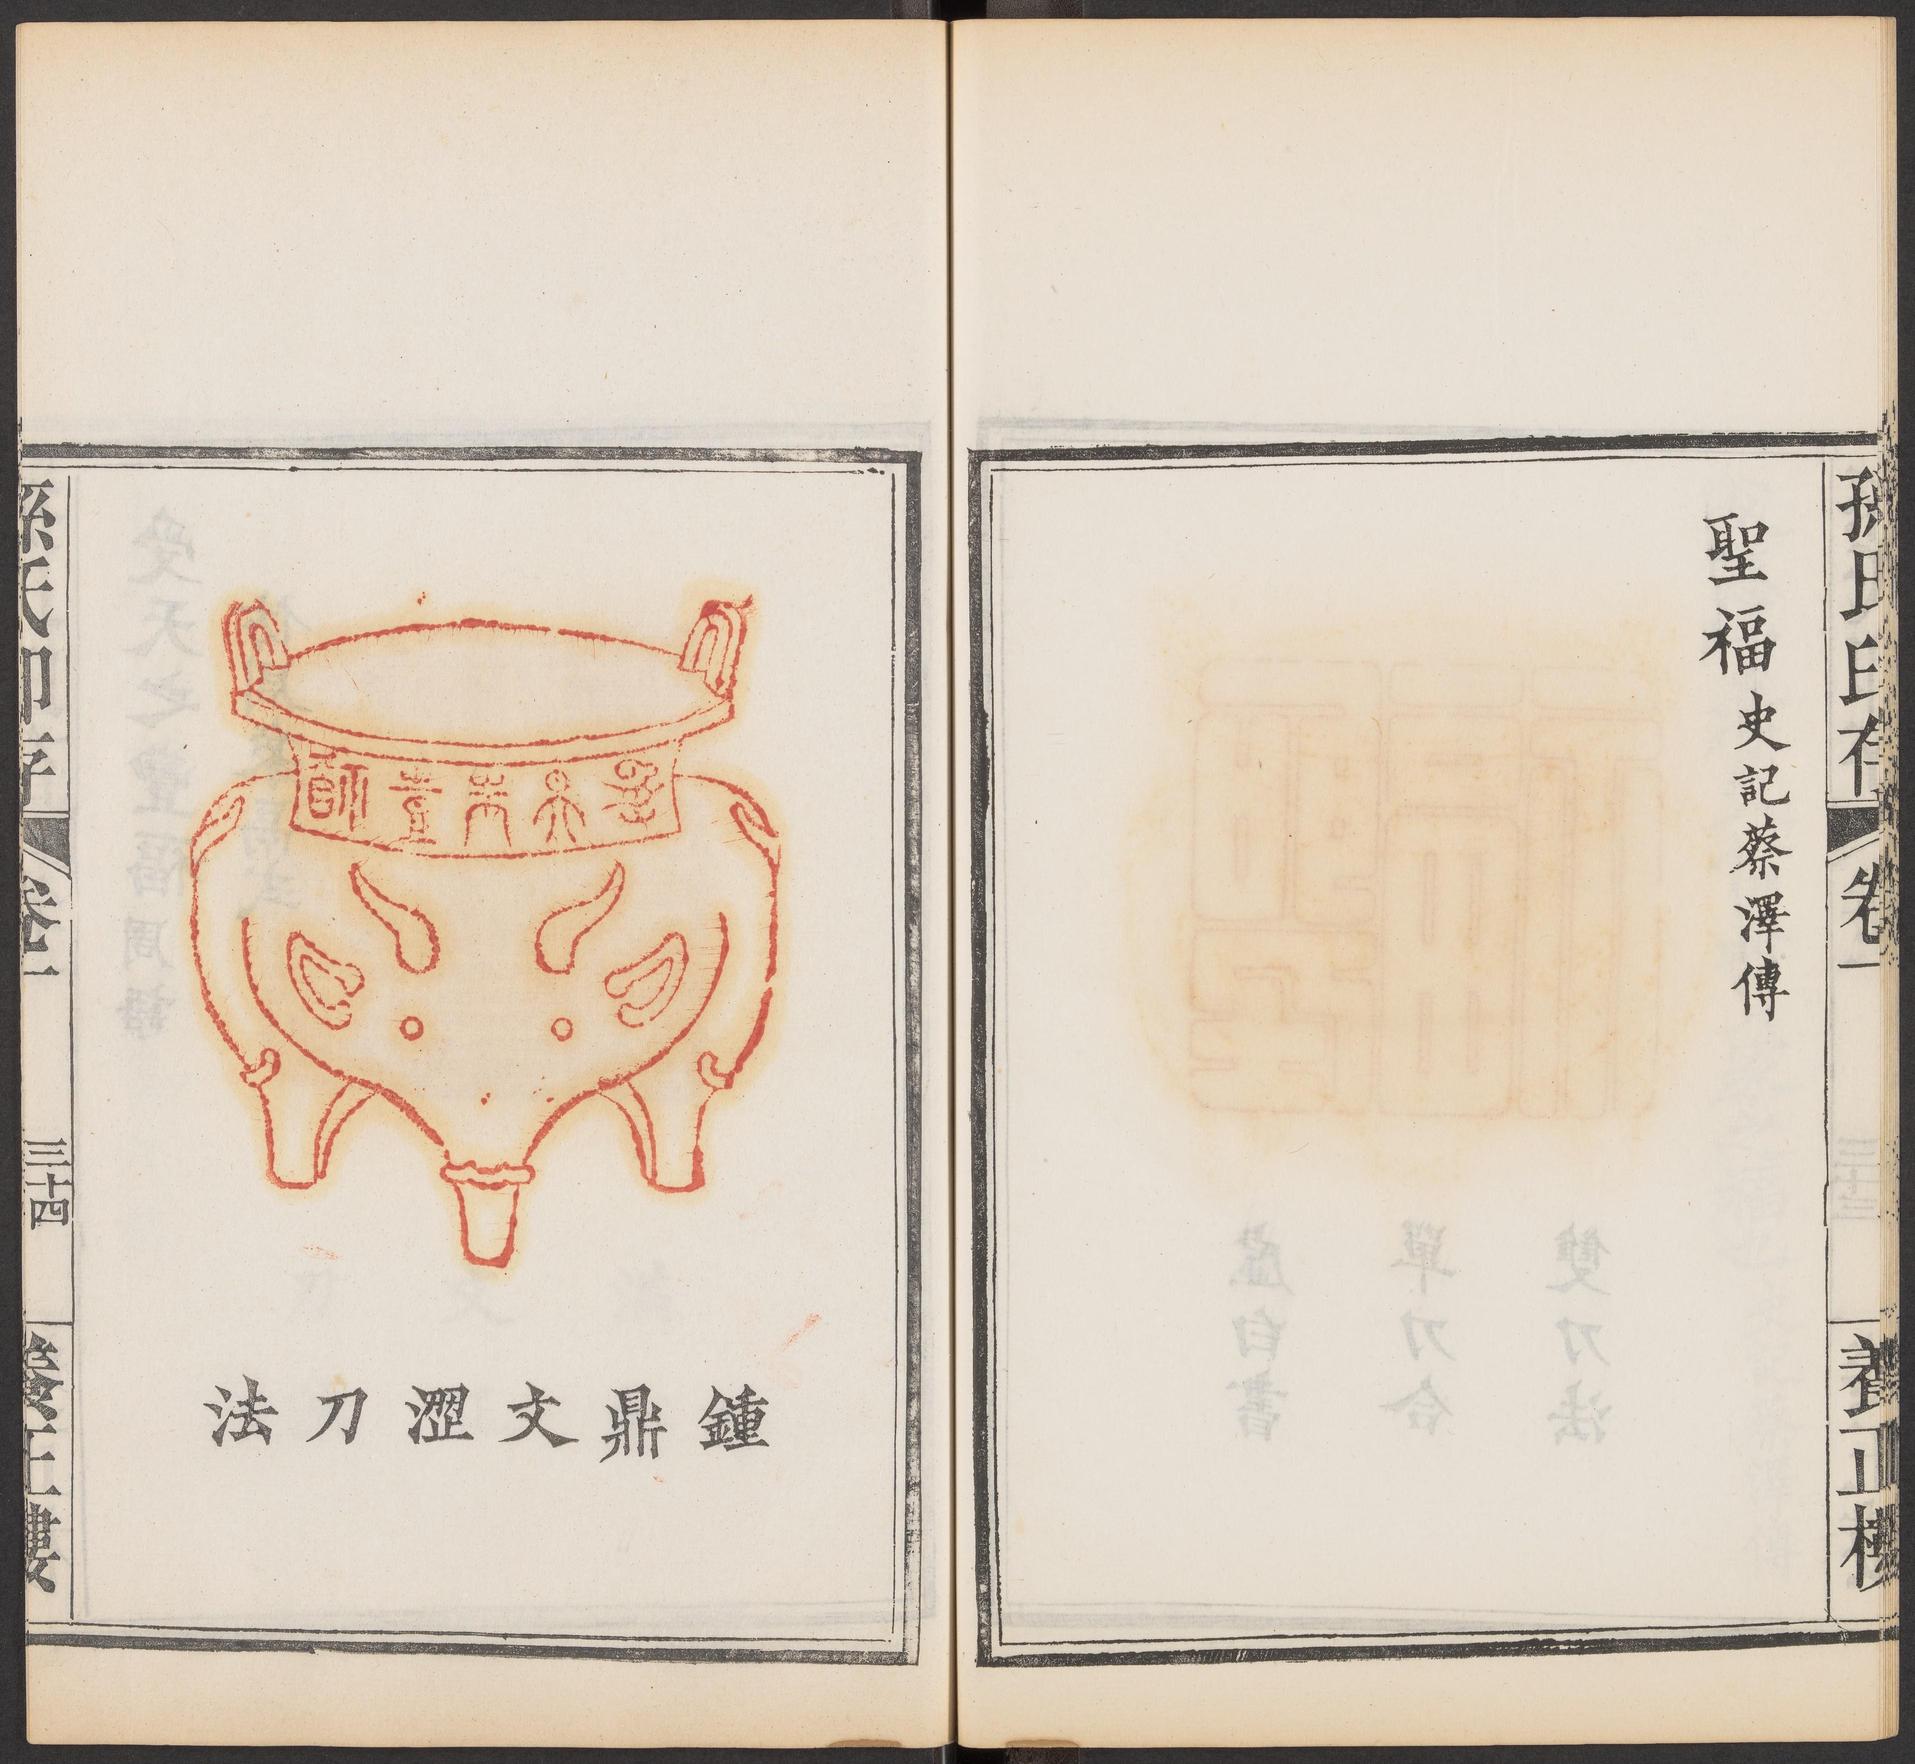 孫氏印存 卷一 養正樓
聖福 史記蔡澤傳
鍾鼎文澀刀法
孫氏印存 卷一 三十四 養正樓